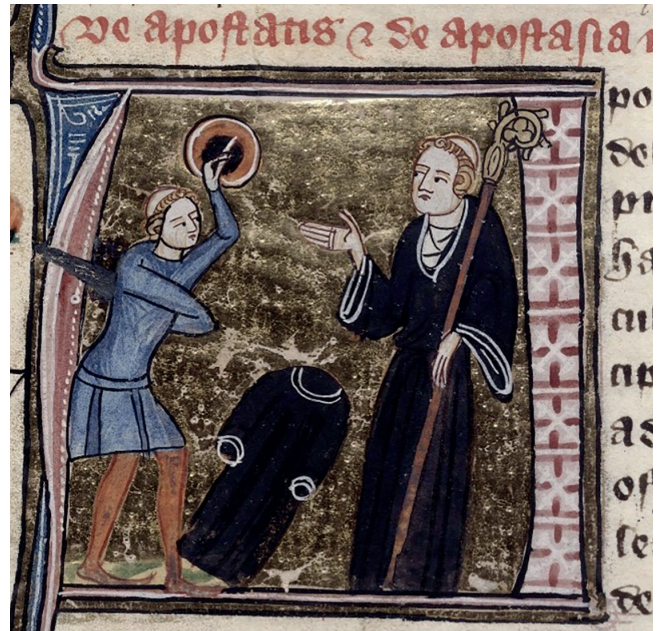 De apostatis ⁊ de apostasia
po
de
pr
ha
cul
cip
ad
of
le
de